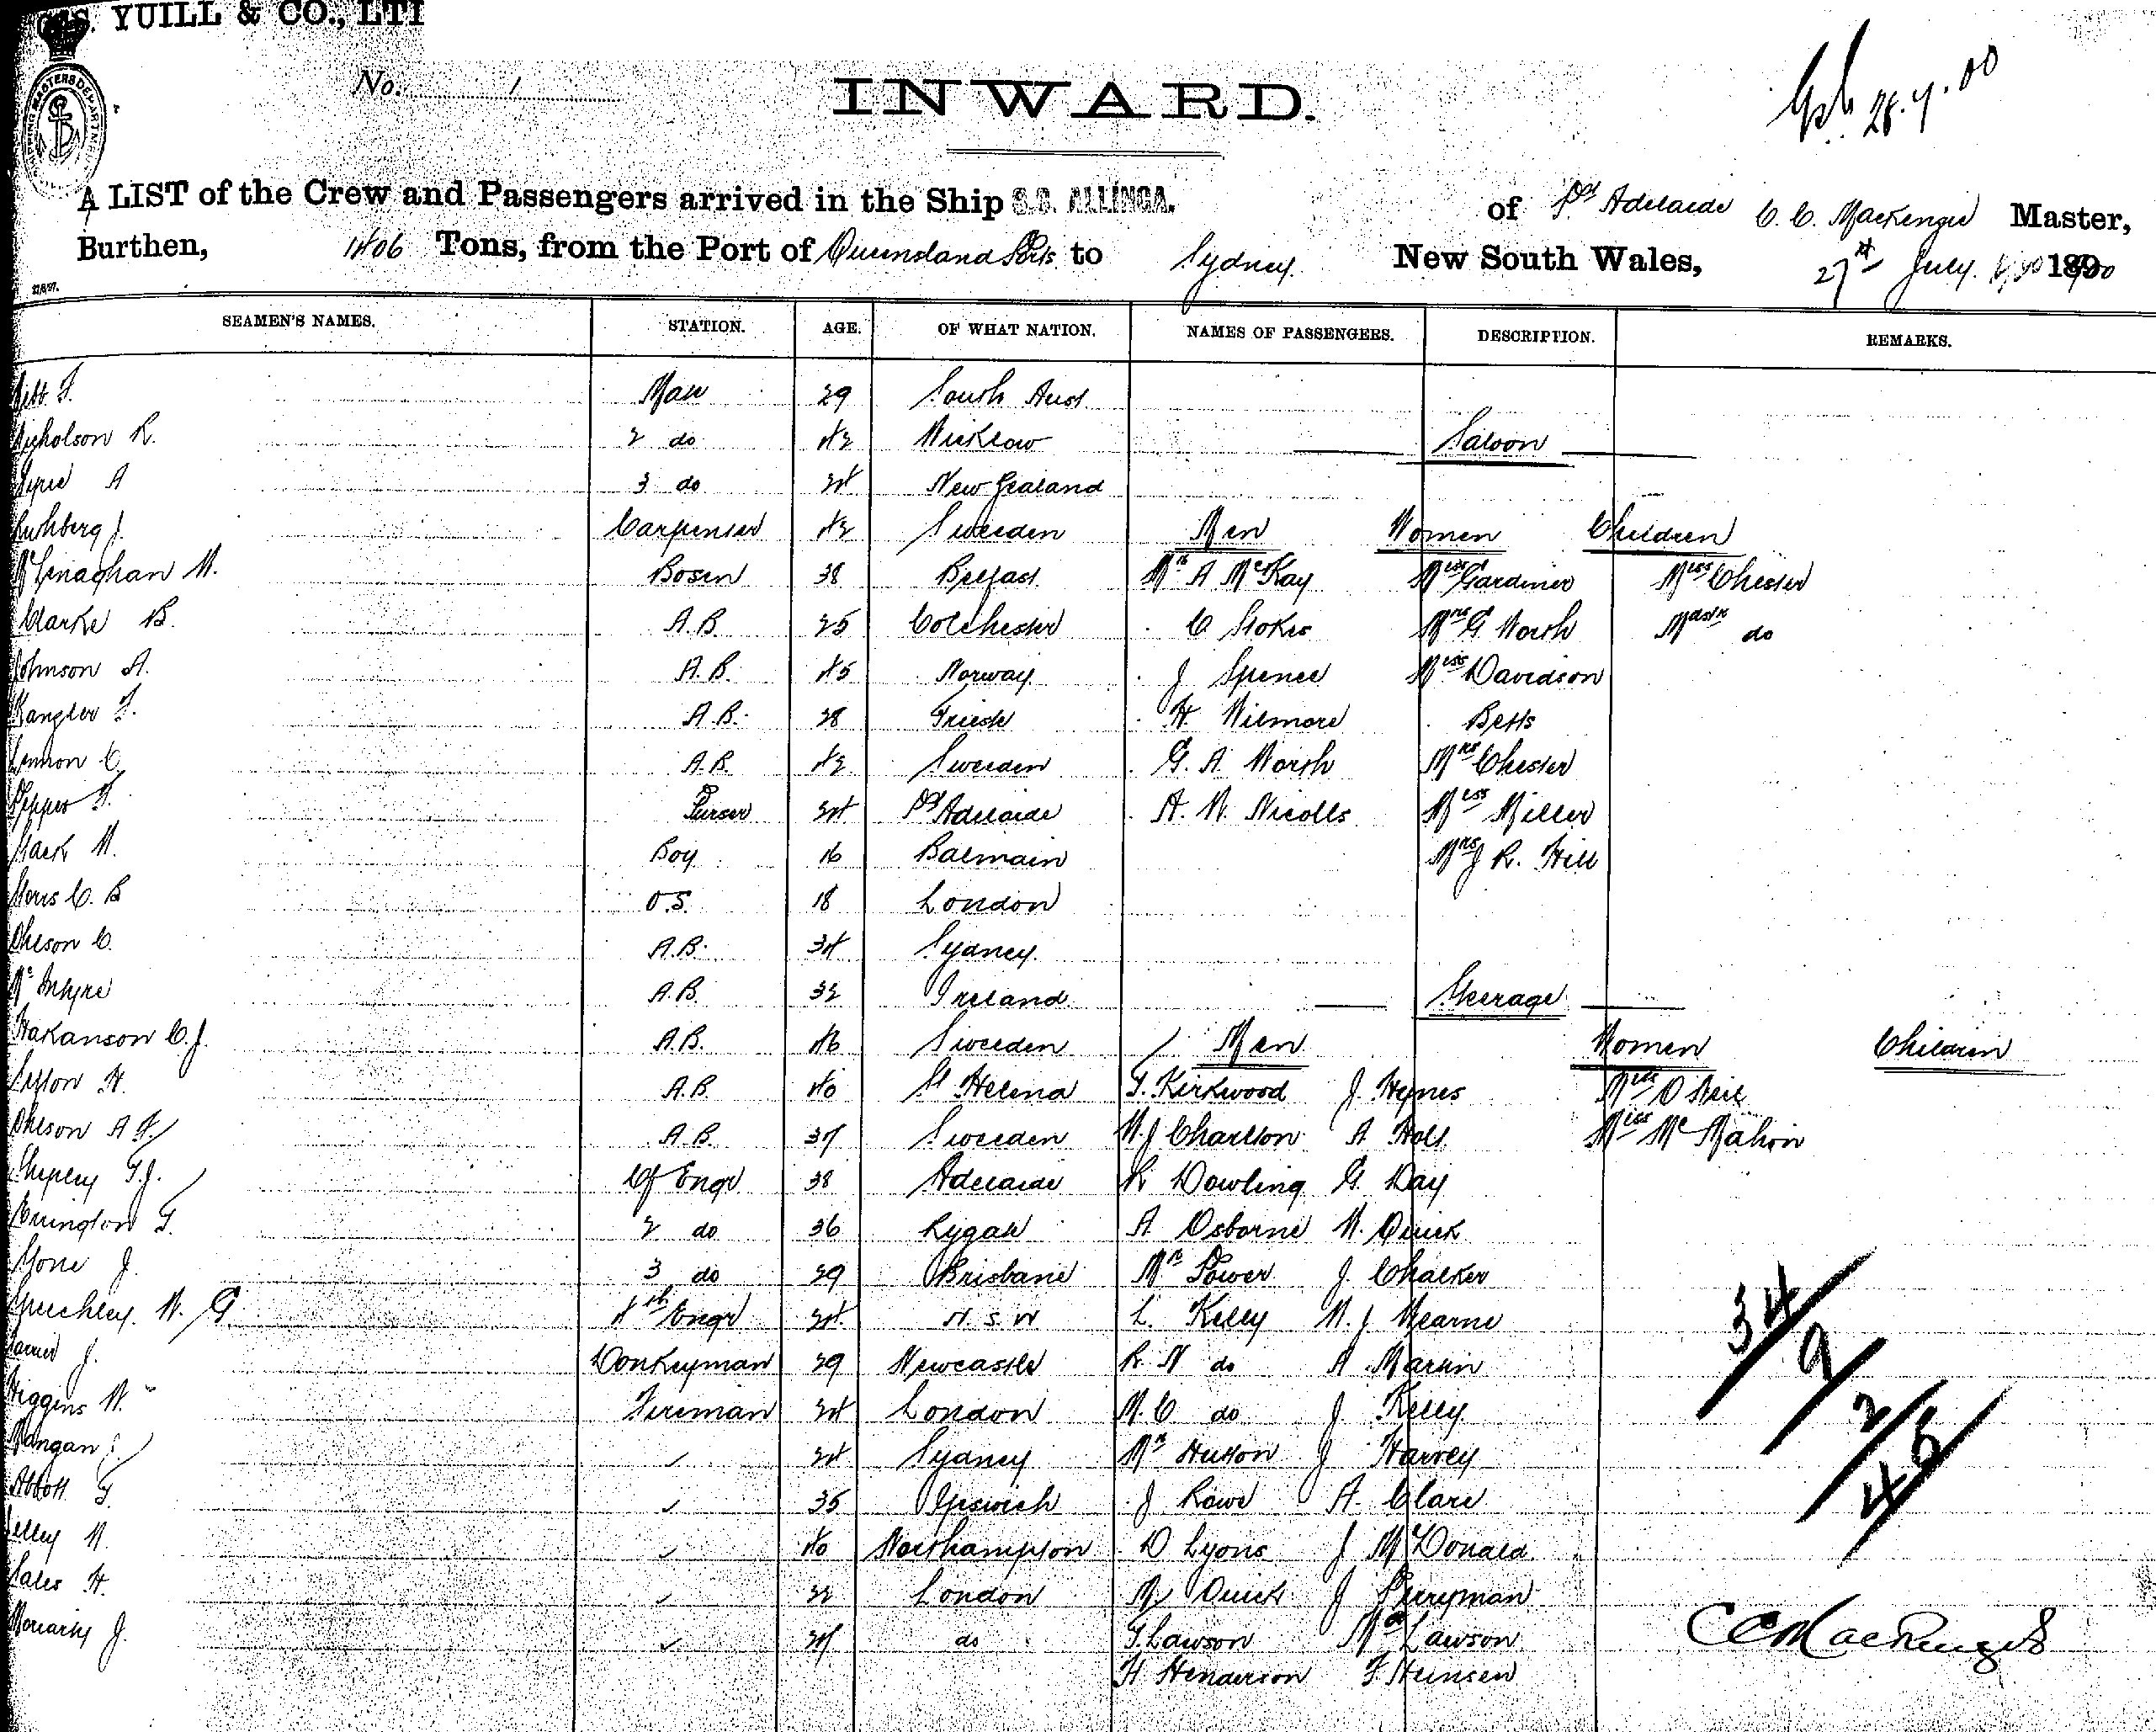 YUILL & CO., LTD
No. 1
INWARD.
28.7.00
A LIST of the Crew and Passengers arrived in the Ship S.S. ALLINGA. of Pt Adelaide C. C. Mackenzie Master,
Burthen, 1406 Tons, from the Port of Queensland Ports to Sydney. New South Wales, 27th July. 1900
SEAMEN'S NAMES. STATION. AGE. OF WHAT NATION. NAMES OF PASSENGERS. DESCRIPTION. REMARKS.
Mate 29 South Aust.
Nicholson R. 2 do 42 Wicklow Saloon
A 3 do 24 New Zealand
J. Carpenter 42 Sweeden Men Women Children
McLenaghan W. Bosun 38 Belfast Mr A McKay Miss Gardiner Miss Chester
Clarke B. A.B. 25 Colchester C Stokes Mrs G Worth Mastr do
Johnson A. A.B. 45 Norway J Spence Miss Davidson
Kangler F. A.B. 28 Trieste H. Wilmore Betts
C. A.B. 42 Sweeden G. A. Worth Mrs Chester
Pepper F. Purser 24 Pt Adelaide A. W. Nicolls Miss Miller
W. Boy 16 Balmain Mrs J R. Hill
C. B O.S. 18 London
Olsson C. A.B. 34 Sydney
McIntyre A.B. 32 Ireland Steerage
Hakanson C. J. A.B. 46 Sweeden Men Women Children
H. A.B. 40 St Helena T. Kirkwood J. Hynes Miss O Neil
Olsson A F. A.B. 37 Sweeden W. J Charlton A Holt Miss McMahon
Shepley T. J. Cf Engr 38 Adelaide R Dowling G. Day
F. 2 do 36 A Osborne W. Quick
Stone J. 3 do 29 Brisbane Mr Power J. Chalker
W. G. 4th Engr 24 N. S. W L. Kelly W. J Hearne
J. Donkeyman 29 Newcastle R. N do A Martin
Higgins W. Fireman 24 London W. C do J Kelly
Mangan 24 Sydney Mr Hutton J Harvey
Abbott F. 35 Ipswich J Rowe A. Clare
Kelley W. 40 Northampton D Lyons J McDonald
Sales H. 22 London Quick J Perryman
Moriarty J. 24 do T. Lawson Mrs Lawson
H Henderson F. Heinsen
34
9
2
45
C C Mackenzie